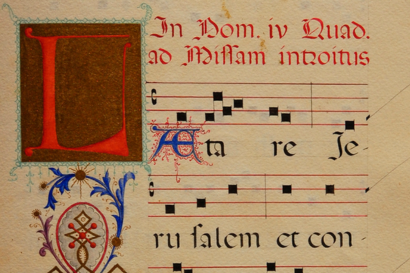 In Dom. iv Quad.
ad Missam introitus
LÆta re Je-
ru salem et con-